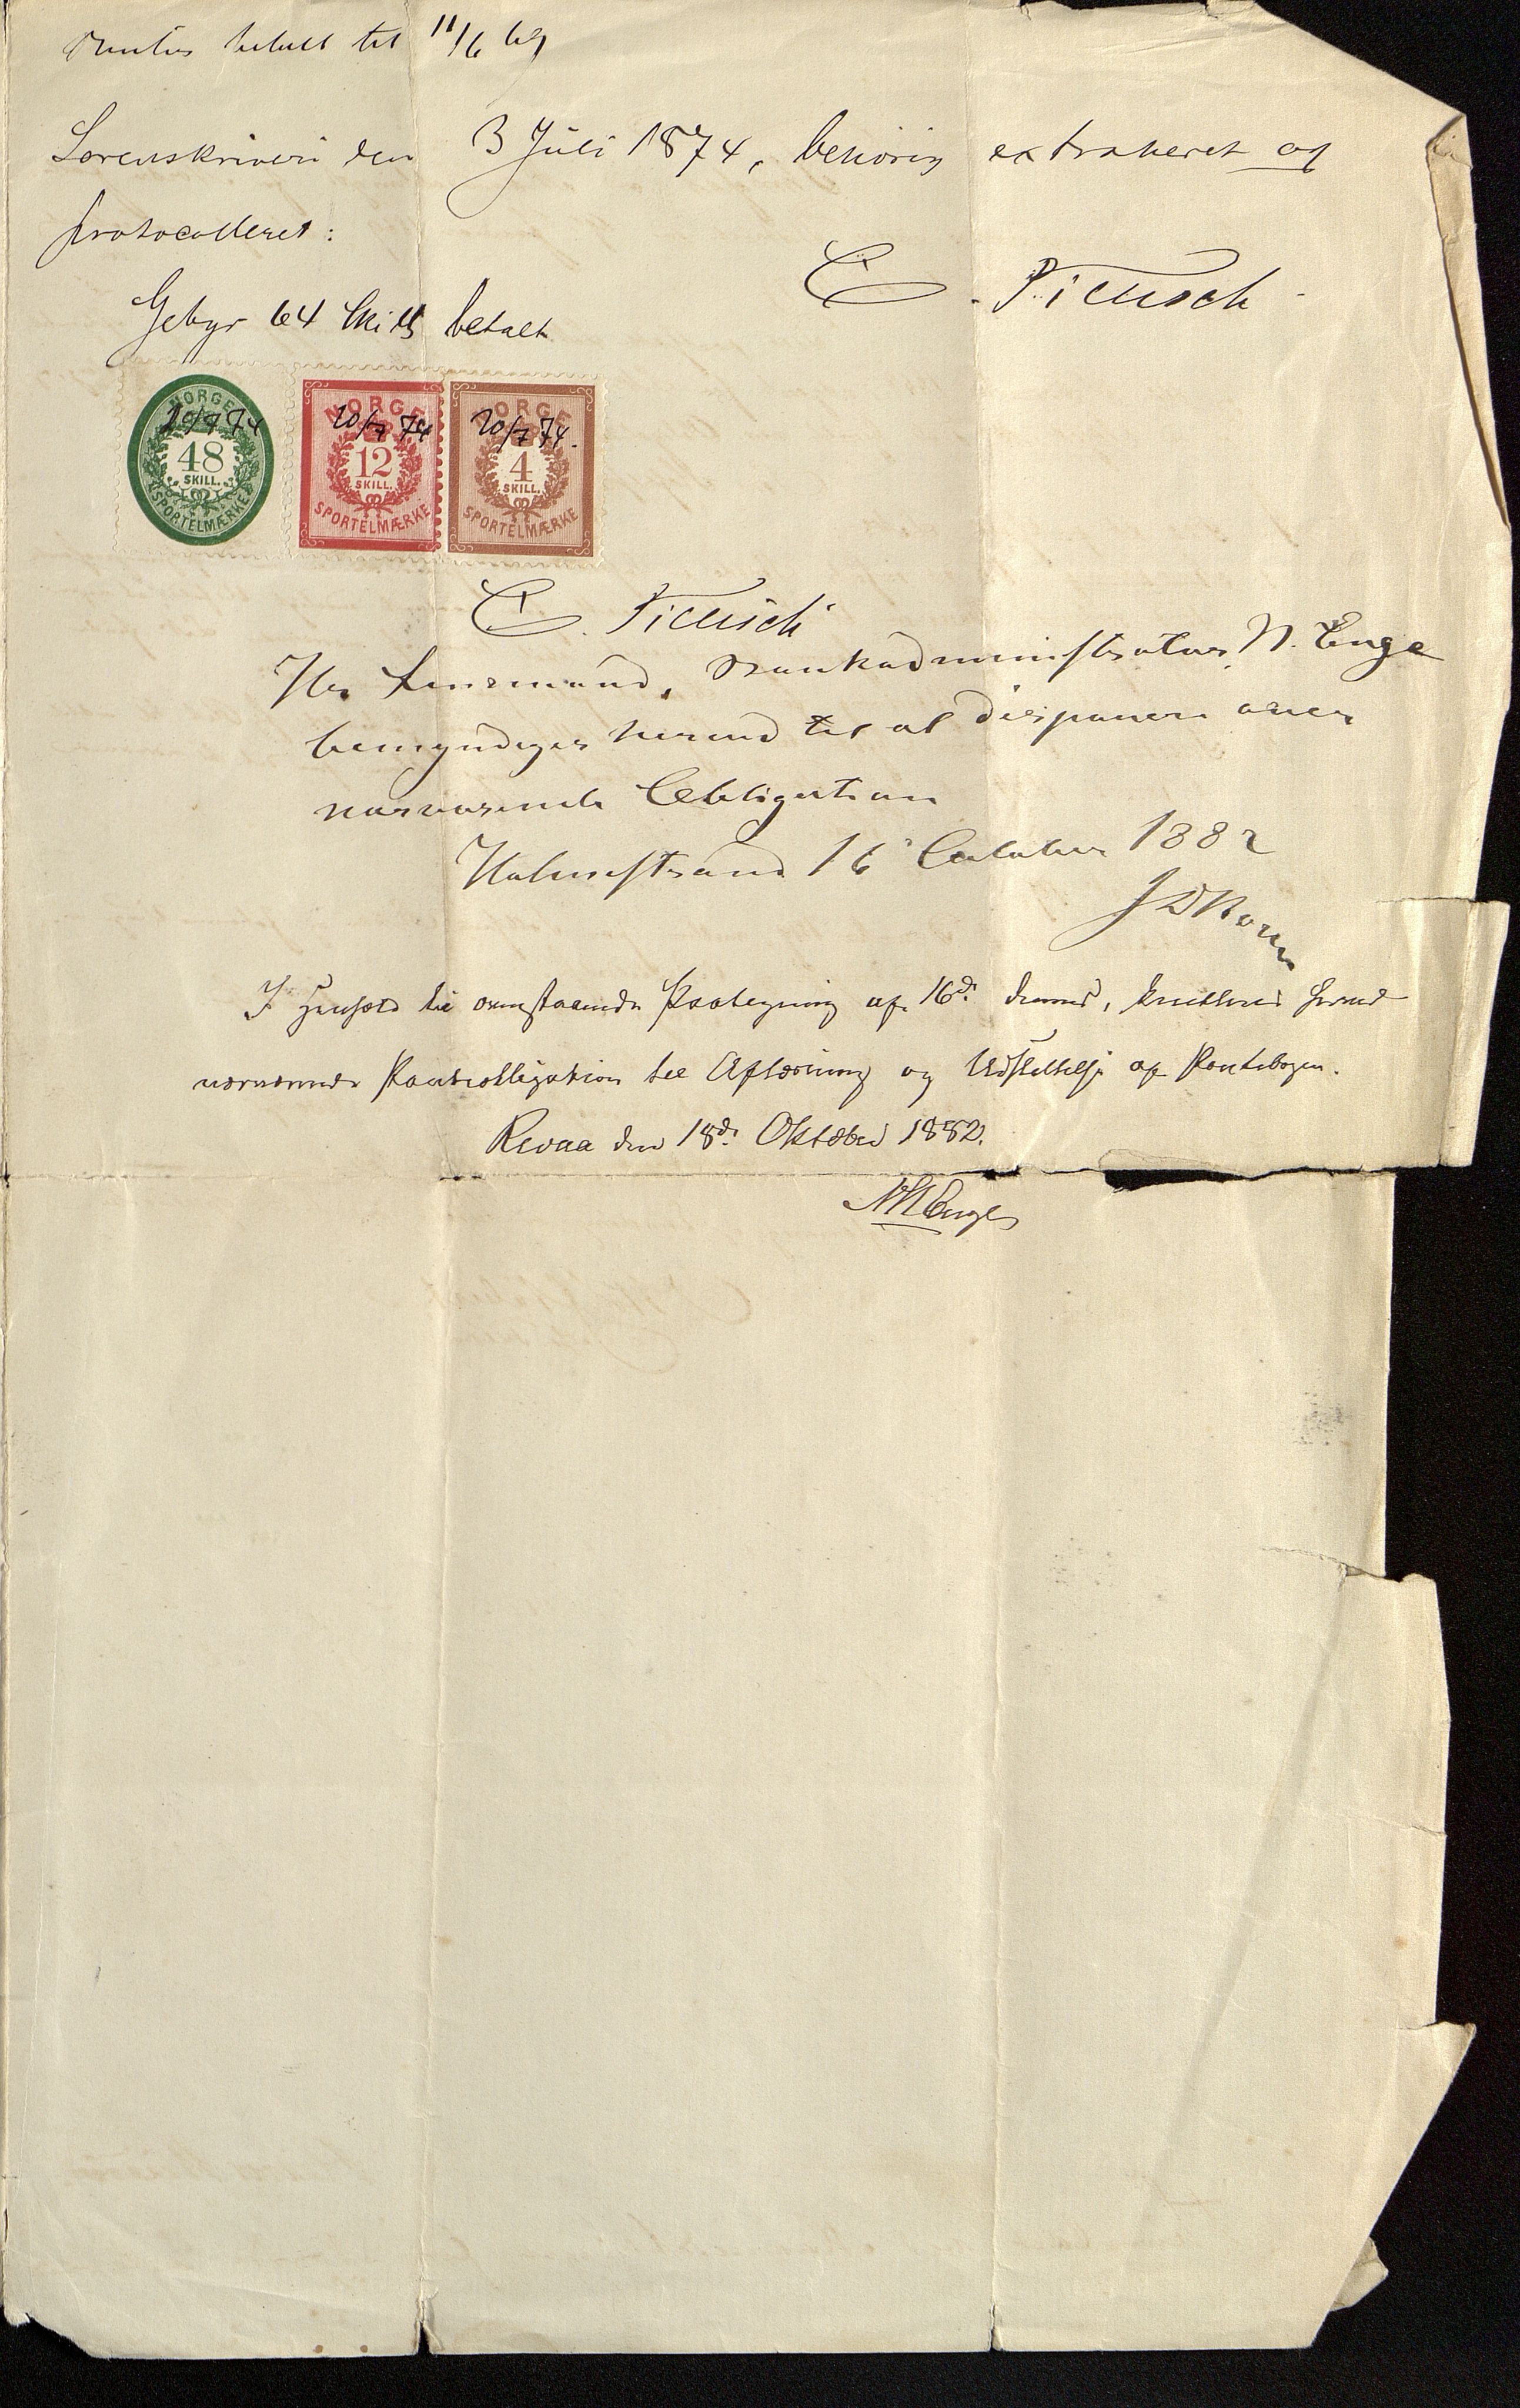 betalt til 11/6 69
Sorenskriveri den 3 Juli 1874, behörig extraheret og
protocolleret:
C. Pitusch
Gebyr 64 Skill betalt
NORGE 20/7 74 48 SKILL. SPORTELMÆRKE
NORGE 20/7 74 12 SKILL. SPORTELMÆRKE
NORGE 20/7 74. 4 SKILL. SPORTELMÆRKE
C. Pitusch
Hr. Lensmand, Bankadministrator N. Enge
bemyndiges herved til at disponere over
nærværende Obligation
Holmestrand 16 October 1882
I Henhold til ovenstaaende Paategning af 16d. dennes, kvitteres herved
nærværende Panteobligation til Aflæsning og Udslettelse af Pantebogen.
Revaa den 18d. Oktober 1882.
NN Enge